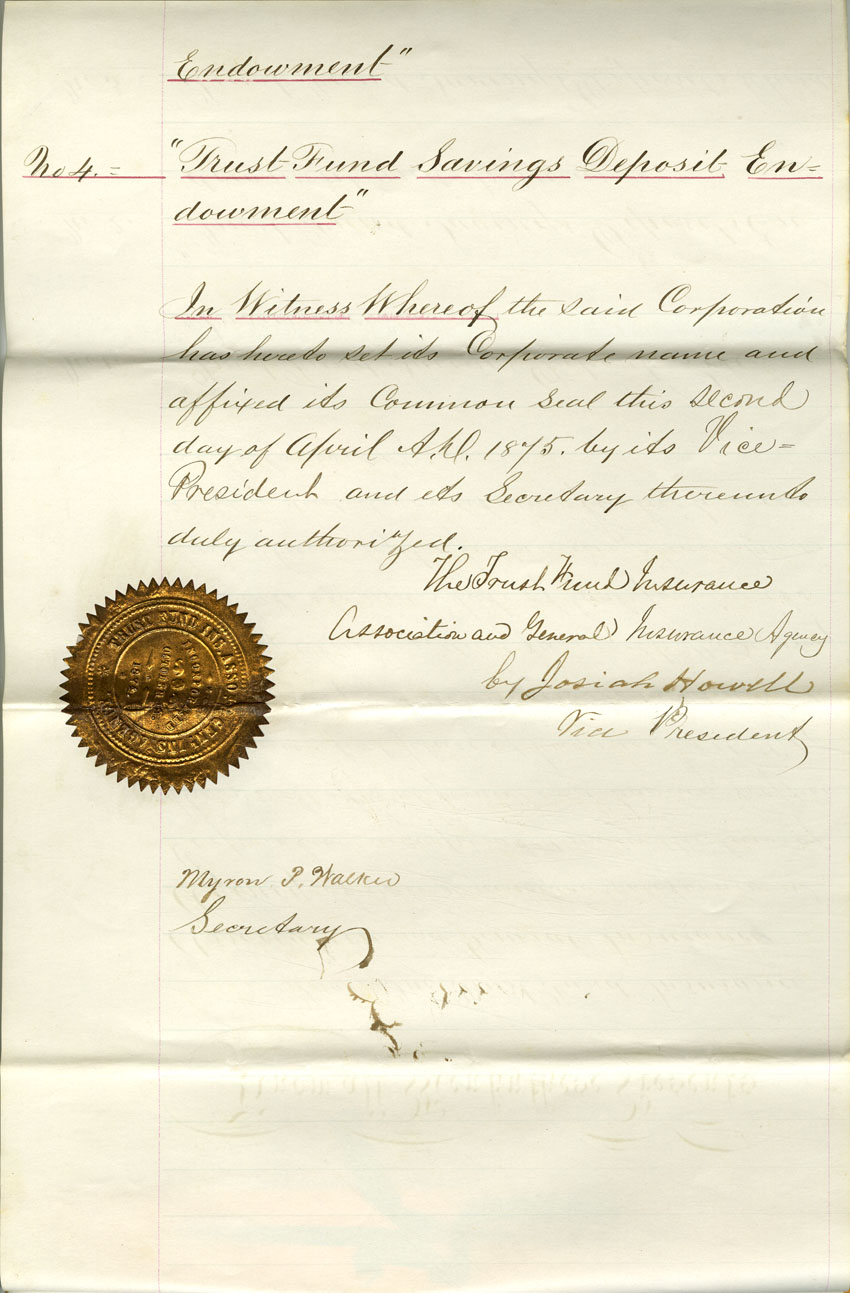 Endowment"
No 4.= "Trust Fund Savings Deposit En=
dowment"
In Witness Whereof the said Corporation
has hereto set its Corporate name and
affixed its Common Seal this second
day of April A.D. 1875. by its Vice=
President and its Secretary thereunto
duly authorized.
The Trust Fund Insurance
Association and General Insurance Agency
by Josiah Howell
Vice President
TRUST FUND INS. ASSOC.
Myron P. Walker
Secretary